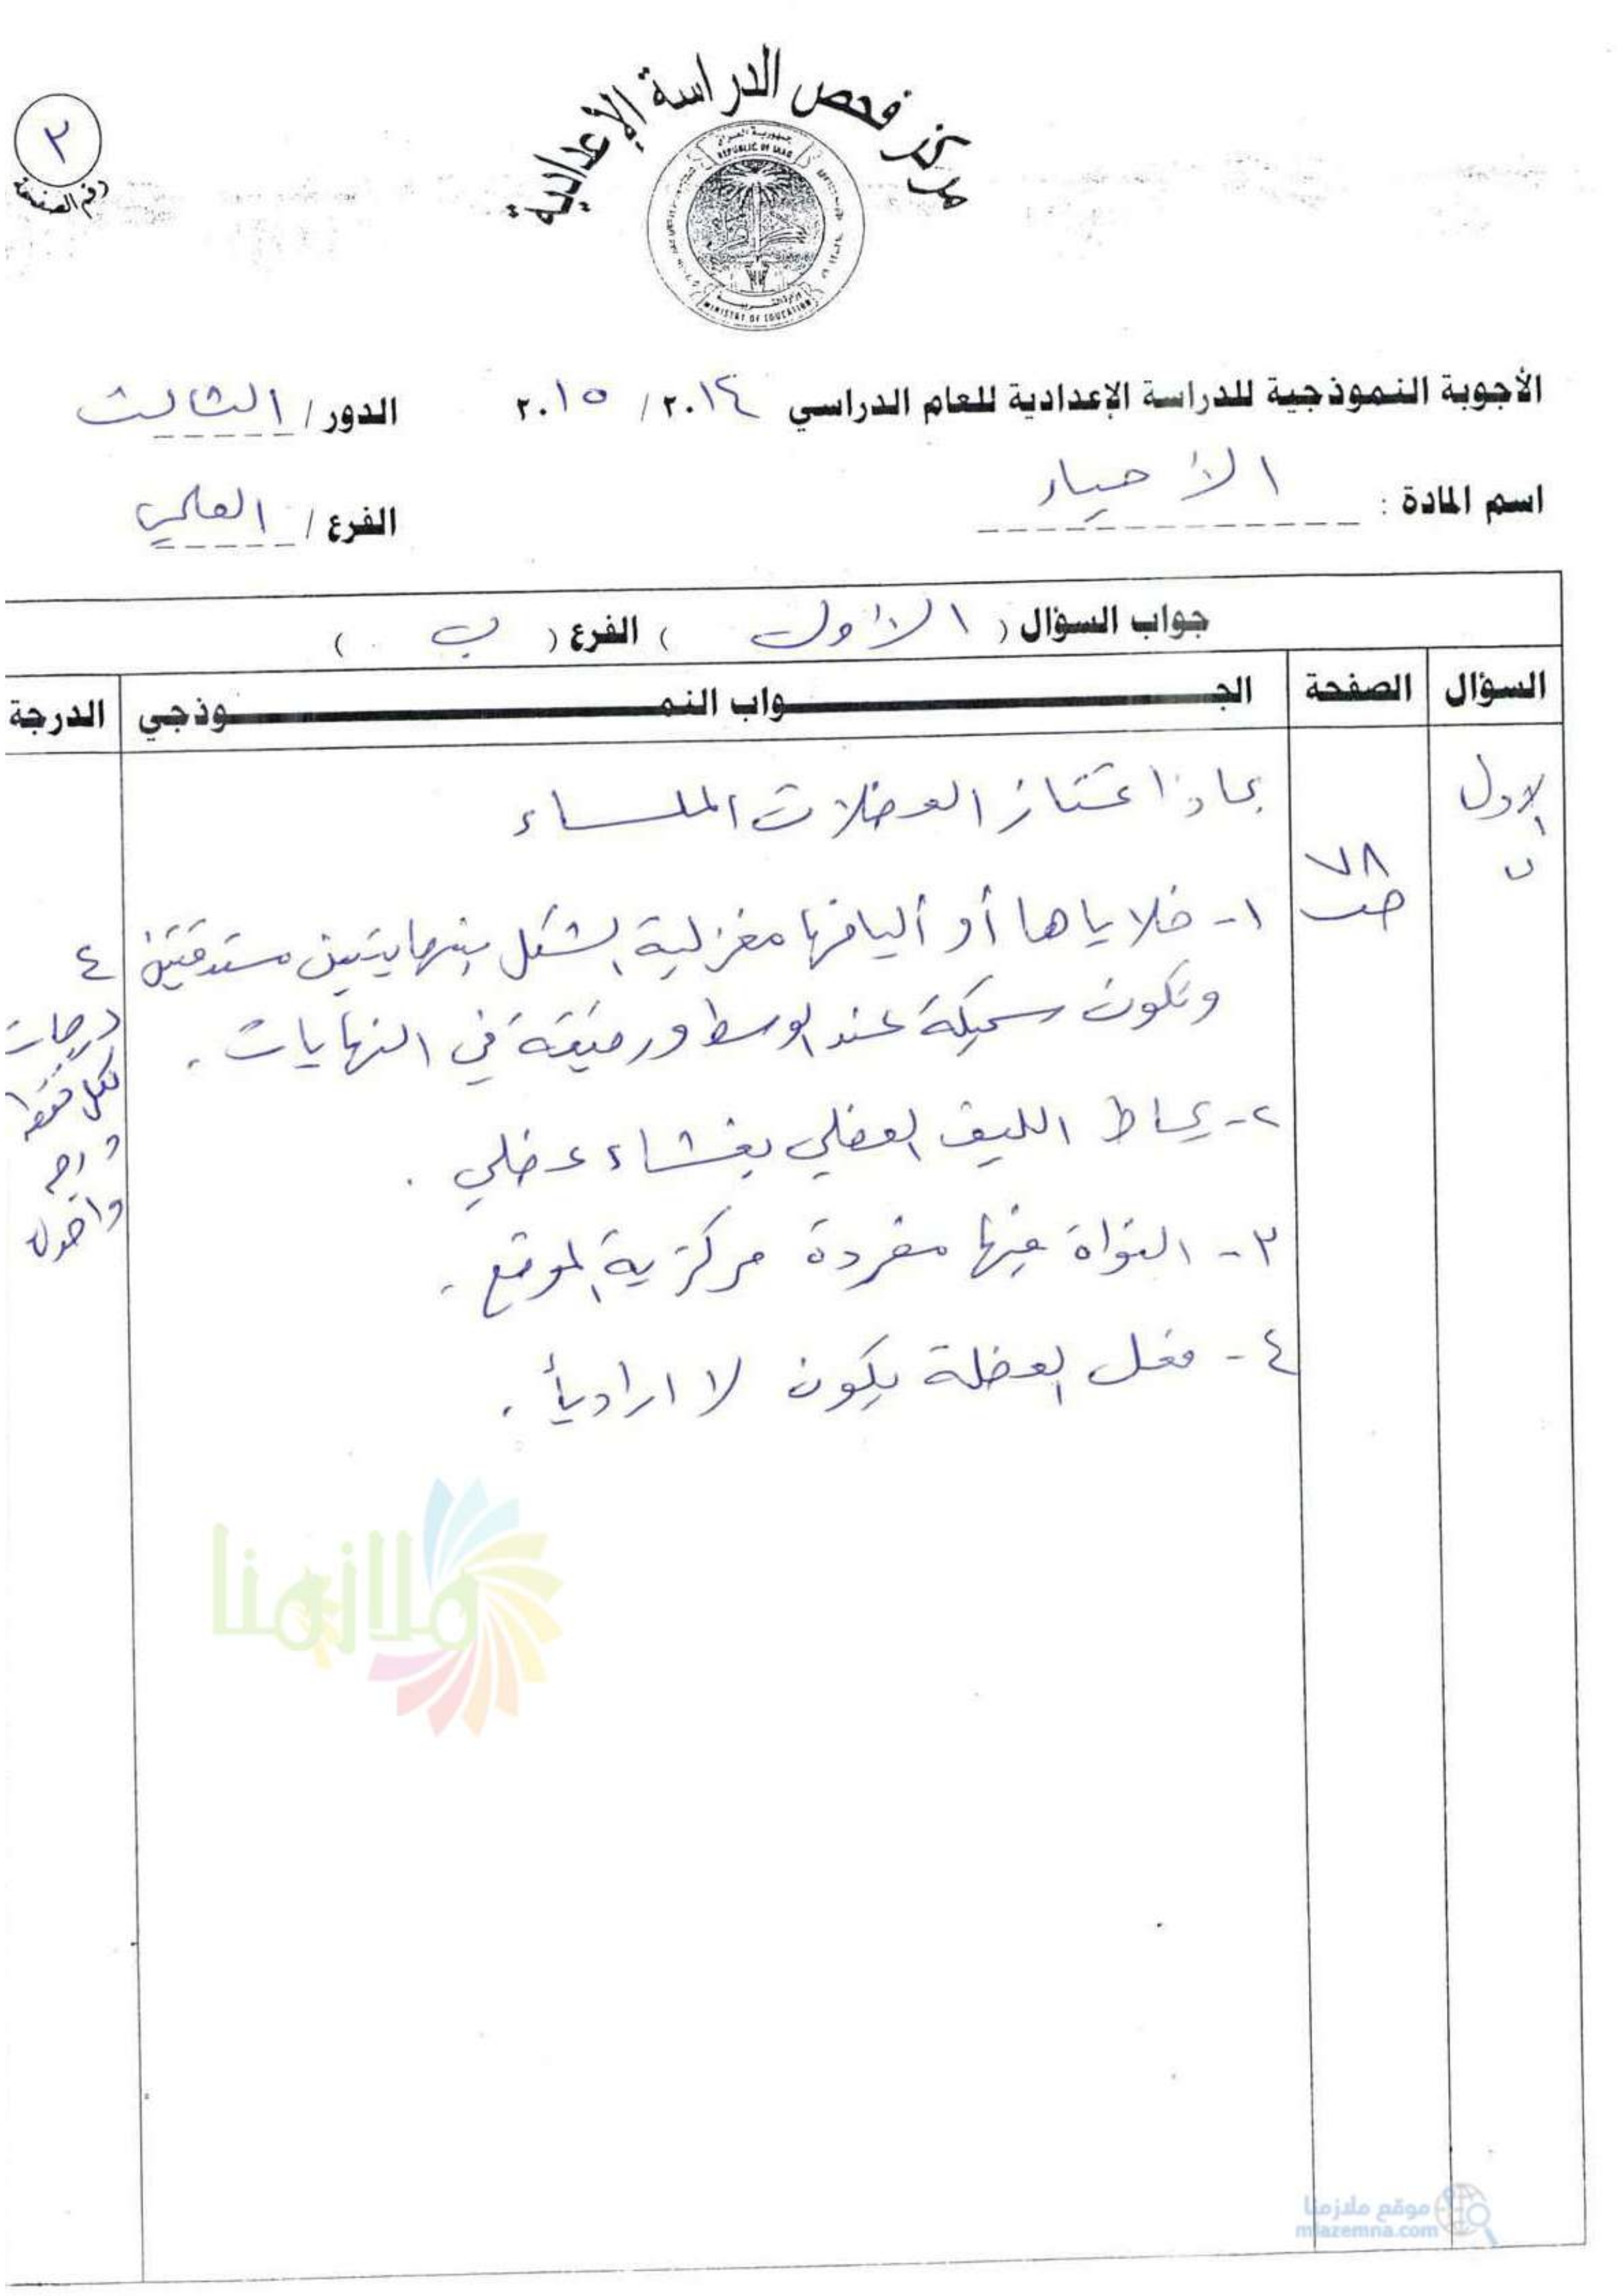 مركز فحص الدراسة الإعدادية
جمهورية العراق
REPUBLIC OF IRAQ
MINISTRY OF EDUCATION
٢
رقم الصفحة
الأجوبة النموذجية للدراسة الإعدادية للعام الدراسي ٢٠١٤ / ٢٠١٥ الدور / الثالث
اسم المادة : الأحياء الفرع / العلمي
جواب السؤال ( الأول ) الفرع ( ب )
السؤال الصفحة الجـــواب النمـــوذجي الدرجة
الاول
ب
٧٨
صـ
بماذا تمتاز العضلات الملساء
١- خلاياها أو أليافها مغزلية الشكل بنهايتين مستدقتين
وتكون سميكة عند الوسط ورفيعة في النهايات .
٢- يحاط الليف العضلي بغشاء عضلي .
٣- النواة فيها مفردة مركزية الموقع .
٤- فعل العضلة يكون لا ارادياً .
٤
درجات
لكل نقطة
درجة
واحدة
ملازمنا
موقع ملازمنا
mlazemna.com